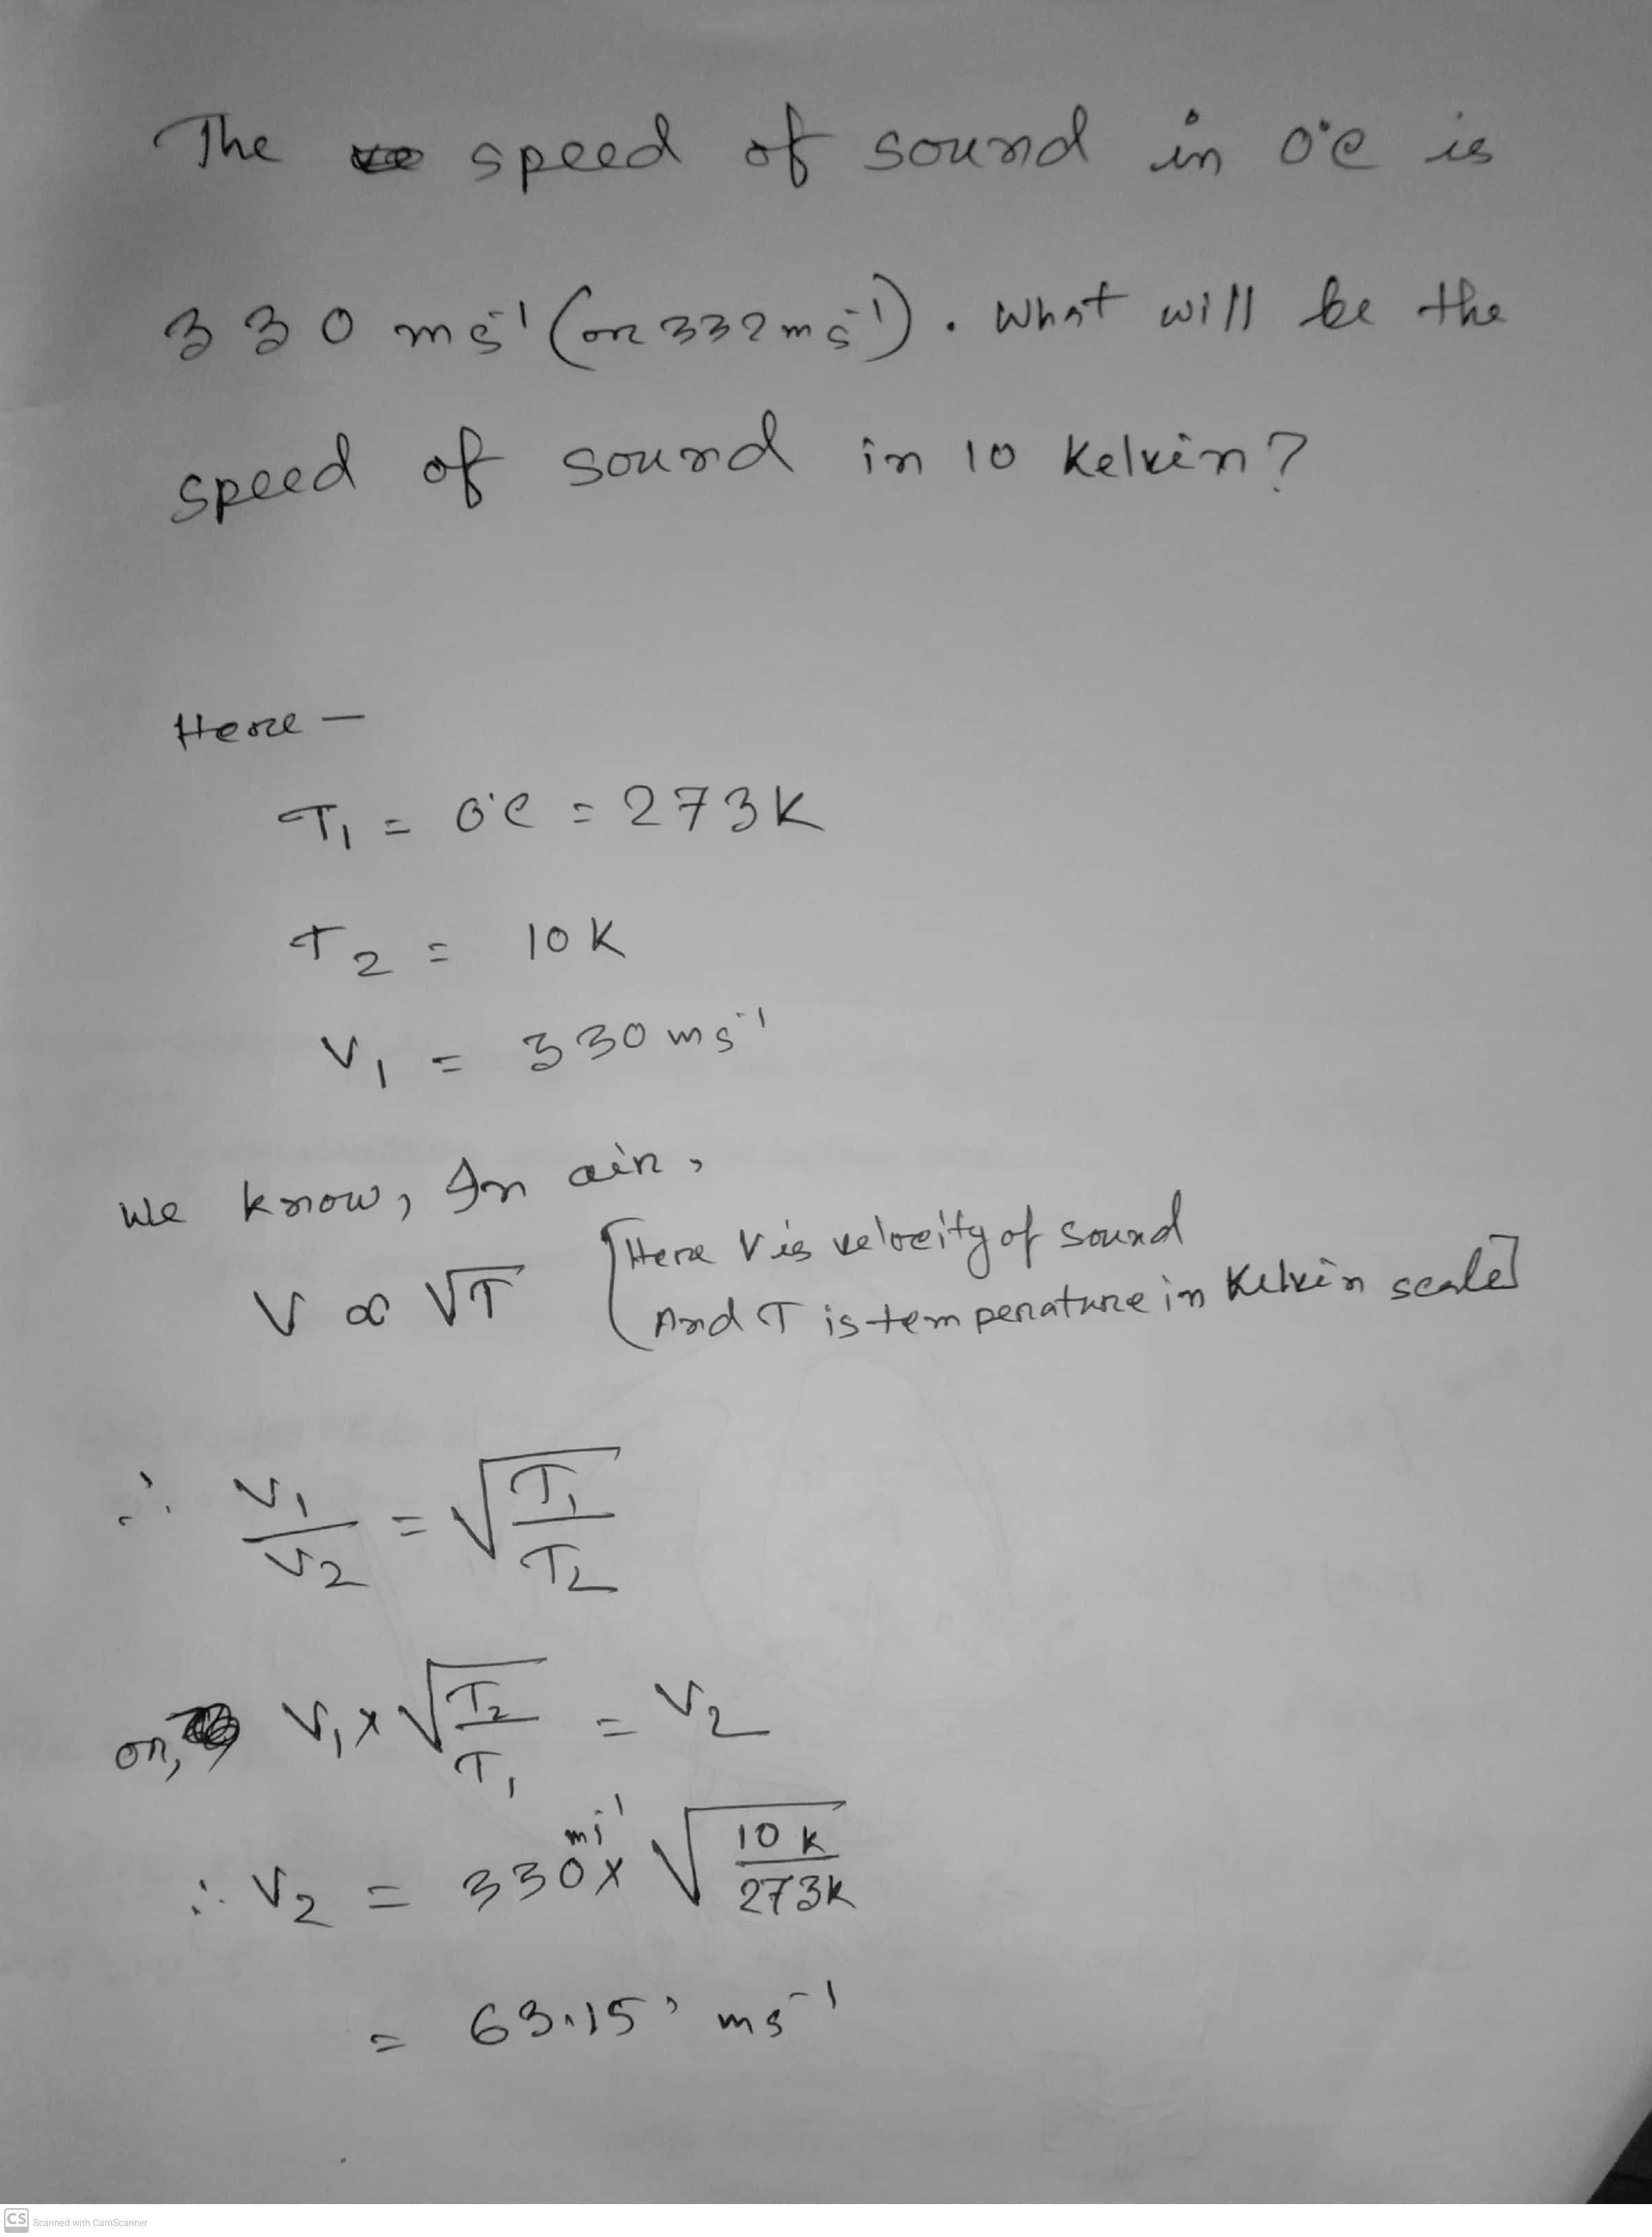 The speed of sound in 0°C is
330 ms⁻¹ (or 332 ms⁻¹). What will be the
speed of sound in 10 Kelvin?
Here —
T₁ = 0°C = 273K
T₂ = 10K
V₁ = 330 ms⁻¹
We know, In air,
V ∝ √T [Here V is velocity of sound
And T is temperature in Kelvin scale]
∴ V₁/V₂ = √(T₁/T₂)
or, V₁ × √(T₂/T₁) = V₂
∴ V₂ = 330 ms⁻¹ × √(10K/273K)
= 63.15 ms⁻¹
CS Scanned with CamScanner